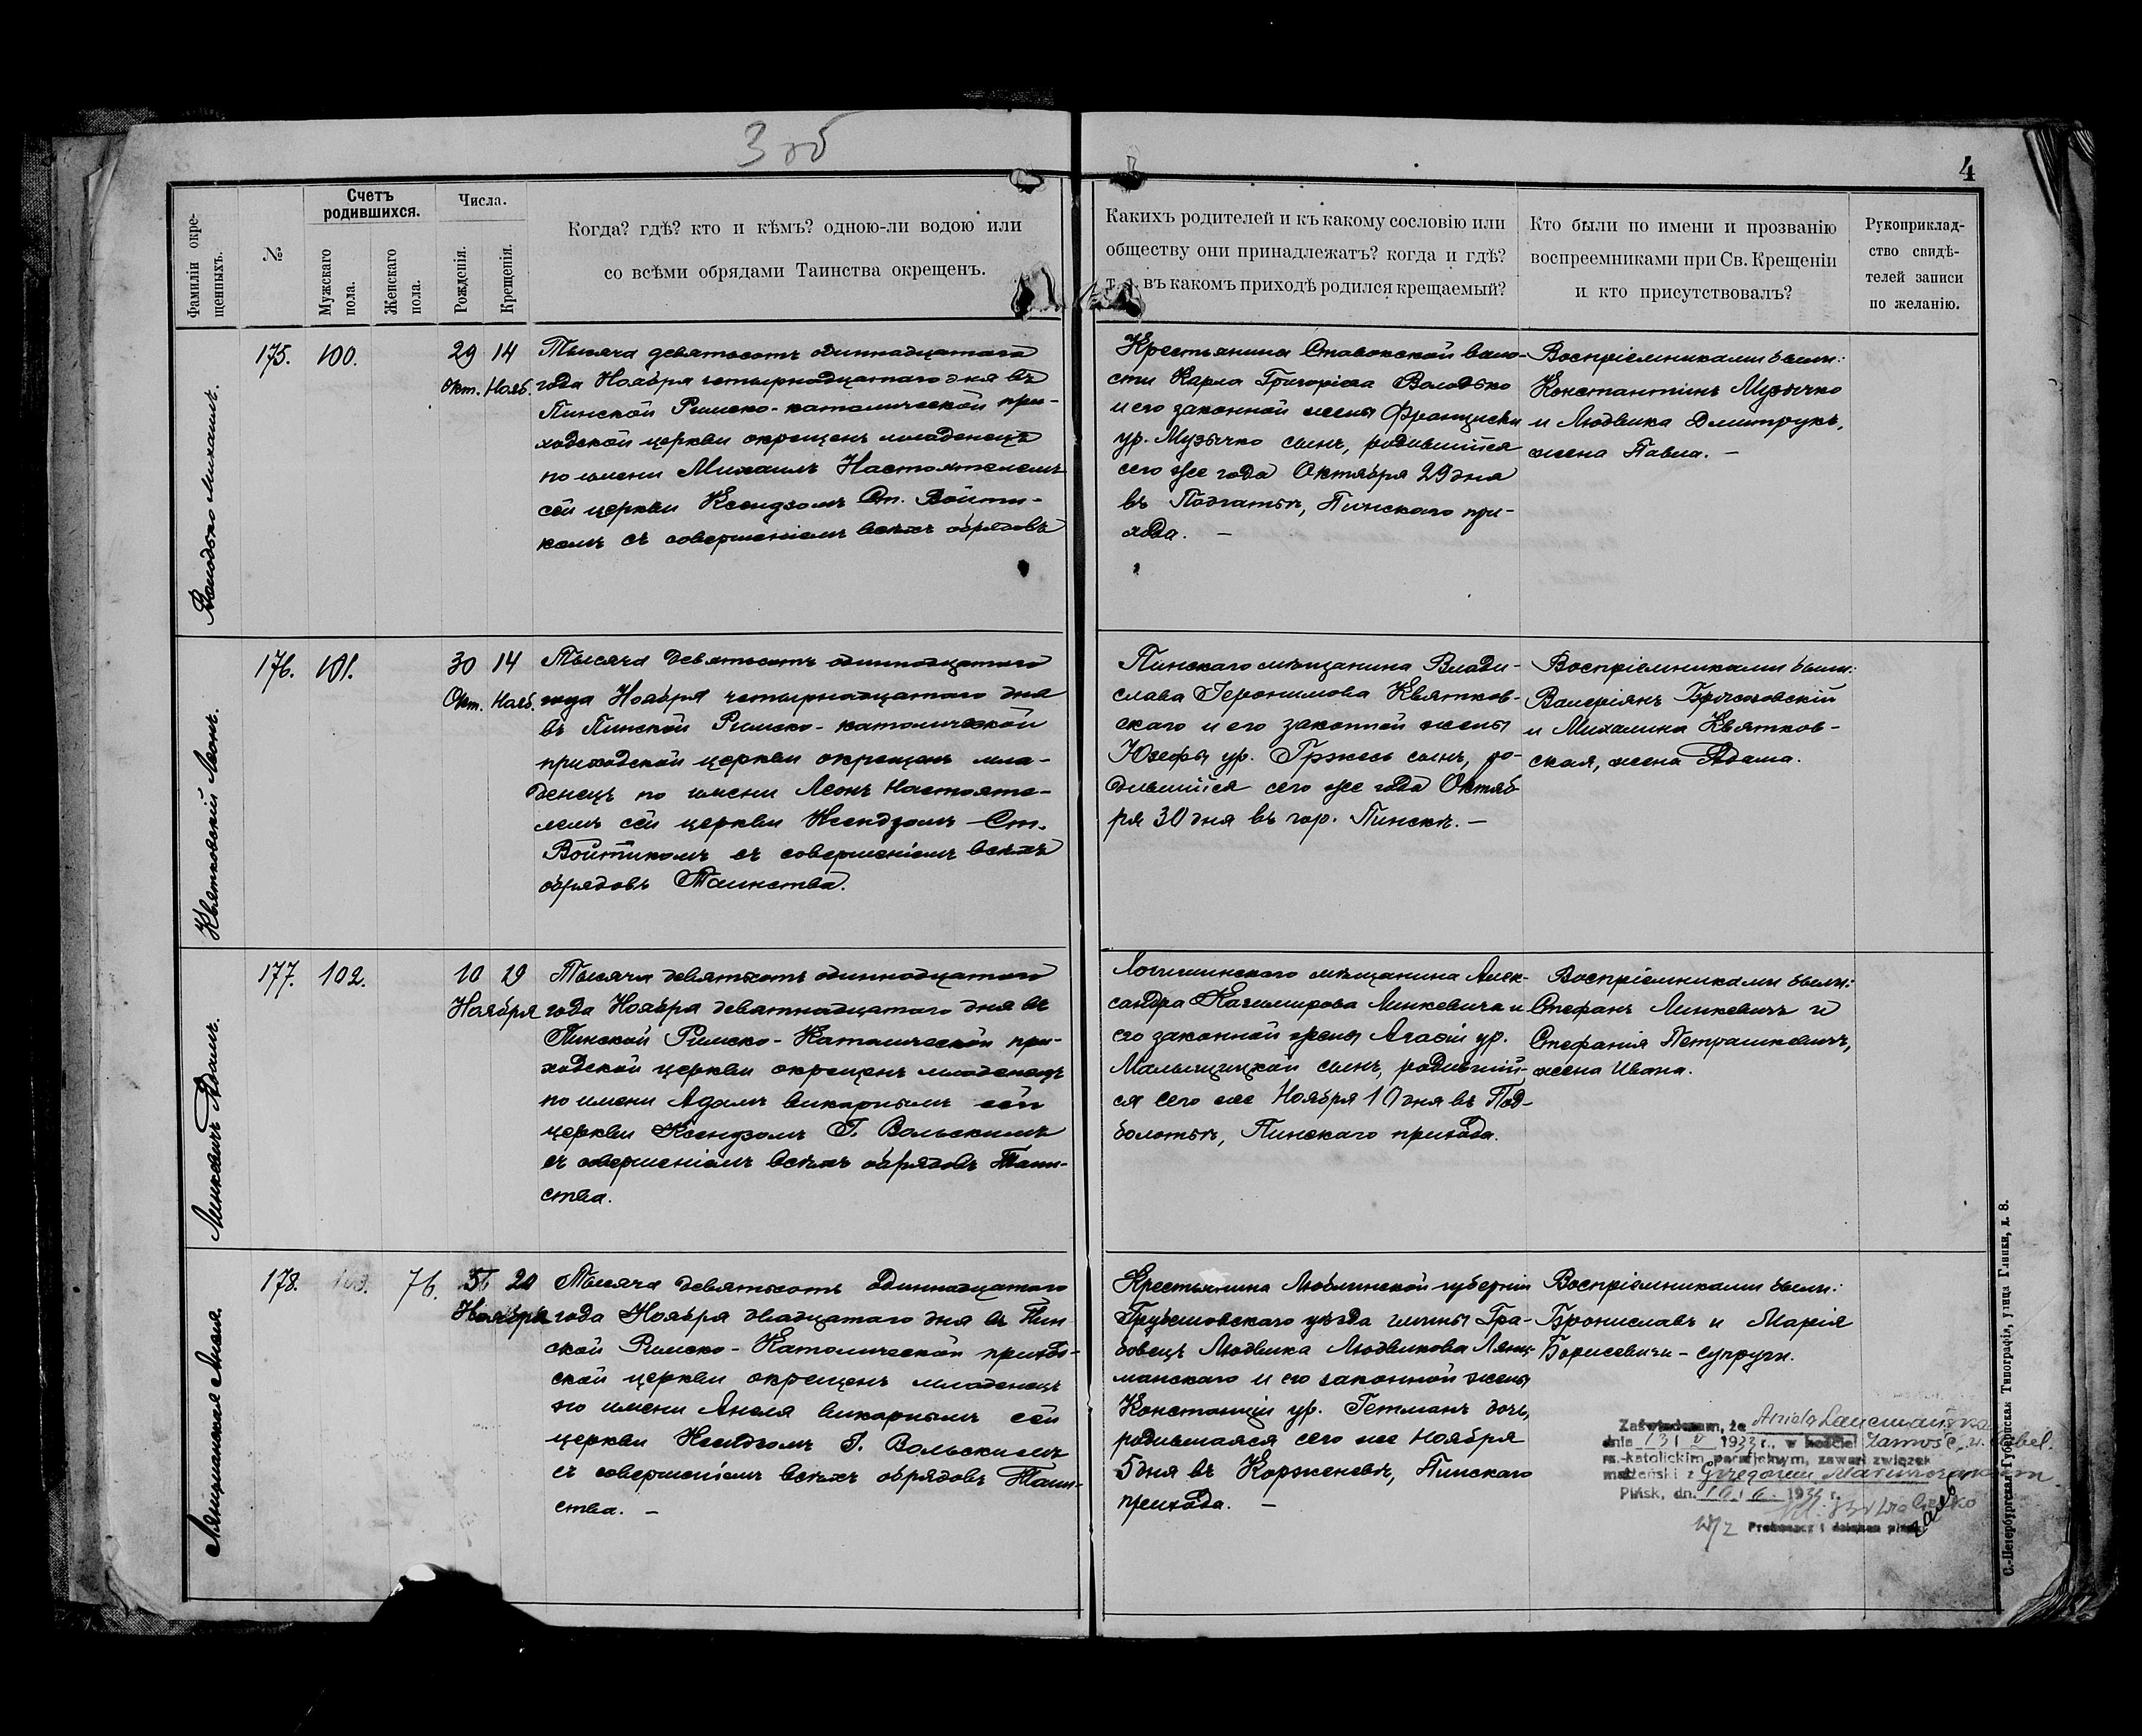 3 об
4
Фамиліи окре-
щенныхъ.
№
Счетъ
родившихся.
Мужскаго
пола.
Женскаго
пола.
Числа.
Рожденія.
Крещенія.
Когда? гдѣ? кто и кѣмъ? одною-ли водою или
со всѣми обрядами Таинства окрещенъ.
Какихъ родителей и къ какому сословію или
обществу они принадлежатъ? когда и гдѣ?
въ какомъ приходѣ родился крещаемый?
Кто были по имени и прозванію
воспреемниками при Св. Крещеніи
и кто присутствовалъ?
Рукоприклад-
ство свидѣ-
телей записи
по желанію.
Володько Михаилъ.
175.
100.
29 14
Окт. Нояб.
Тысяча девятьсотъ одиннадцатаго
года Ноября четырнадцатаго дня въ
Пинской Римско-католической при-
ходской церкви окрещенъ младенецъ
по имени Михаилъ Настоятелемъ
сей церкви Ксендзомъ Ст. Войти-
комъ съ совершеніемъ всѣхъ обрядовъ
Крестьянина Ставокской воло-
сти Карла Григорьева Володько
и его законной жены Франциски
ур. Музычко сынъ, родившійся
сего же года Октября 29 дня
въ Подгатьи, Пинскаго при-
хода. —
Воспріемниками были:
Константинъ Музычко
и Людвика Дмитрукъ,
жена Павла. —
Квятковскій Леонъ.
176.
101.
30 14
Окт. Нояб.
Тысяча девятьсотъ одиннадцатаго
года Ноября четырнадцатаго дня
въ Пинской Римско-католической
приходской церкви окрещенъ мла-
денецъ по имени Леонъ Настояте-
лемъ сей церкви Ксендзомъ Ст.
Войтикомъ съ совершеніемъ всѣхъ
обрядовъ Таинства.
Пинскаго мѣщанина Влади-
слава Іеронимова Квятков-
скаго и его законной жены
Юзефы ур. Гржесь сынъ, ро-
дившійся сего же года Октяб-
ря 30 дня въ гор. Пинскѣ. —
Воспріемниками были:
Валеріянъ
и Михалина Квятков-
ская, жена Адама.
Минкевичъ Адамъ.
177.
102.
10 19
Ноября
Тысяча девятьсотъ одиннадцатаго
года Ноября девятнадцатаго дня въ
Пинской Римско-Католической при-
ходской церкви окрещенъ младенецъ
по имени Адамъ викарнымъ сей
церкви Ксендзомъ Г. Вольскимъ
съ совершеніемъ всѣхъ обрядовъ Таин-
ства.
Логишинскаго мѣщанина Алек-
сандра Казимирова Минкевича и
его законной жены Агафіи ур.
Малыщицкой сынъ, родившій-
ся сего же Ноября 10 дня въ Под-
болотьи, Пинскаго прихода.
Воспріемниками были:
Стефанъ Минкевичъ и
Стефанія Петрашкевичъ,
жена Ивана.
Лянцманская Анеля.
178.
76.
5 20
Ноября
Тысяча девятьсотъ одиннадцатаго
года Ноября двадцатаго дня въ Пин-
ской Римско-Католической приход-
ской церкви окрещенъ младенецъ
по имени Анеля викарнымъ сей
церкви Ксендзомъ Г. Вольскимъ
съ совершеніемъ всѣхъ обрядовъ Таин-
ства. —
Крестьянина Люблинской губерніи
Грубешовскаго уѣзда гмины Гра-
бовецъ Людвика Людвикова Лянц-
манскаго и его законной жены
Констанціи ур. Гетманъ дочь,
родившаяся сего же Ноября
5 дня въ Корженевѣ, Пинскаго
прихода. —
Воспріемниками были:
Брониславъ и Марія
Борисевичи - супруги.
Zaświadczam, że Aniela Lancmańska
dnia 13 V 1933 r., w kościel Zamość, w. Lubel.
rz.-katolickim parafjalnym, zawarł związek
małżeński z Grzegorzem
Pińsk, dn. 16 6 193 r.
Proboszcz i dziekan piński
С.-Петербургская Губернская Типографія, улица Глинки, д. 8.